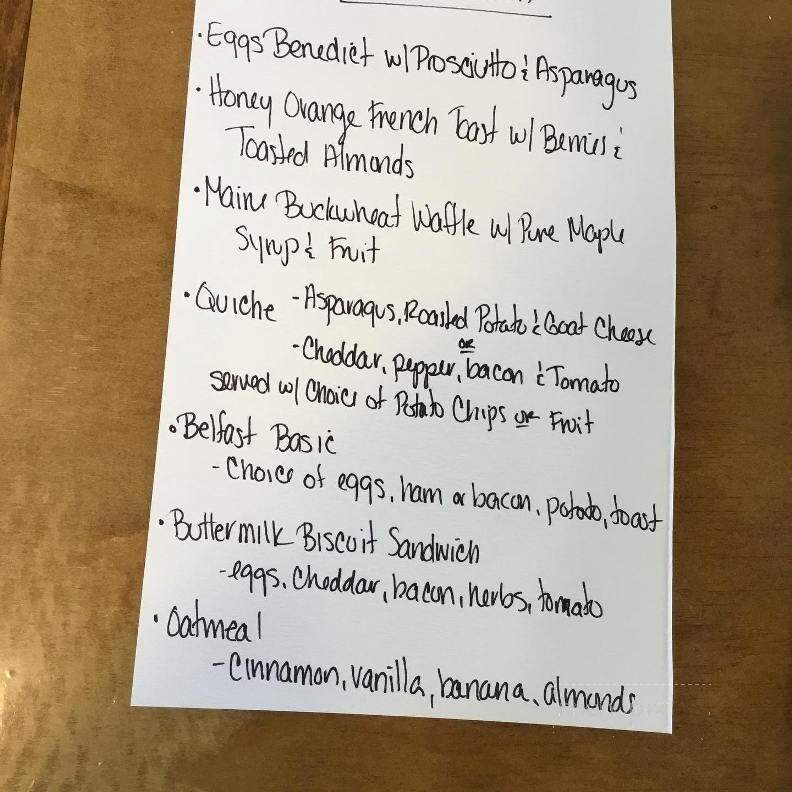 ·Eggs Benedict w/Prosciutto & Asparagus
·Honey Orange French Toast w/ Berries &
Toasted Almonds
·Maine Buckwheat Waffle w/ Pure Maple
Syrup & Fruit
·Quiche -Asparagus, Roasted Potato & Goat Cheese
or
-Cheddar, pepper, bacon & Tomato
served w/ Choice of Potato Chips or Fruit
·Belfast Basic
-Choice of eggs, ham or bacon, potato, toast
·Buttermilk Biscuit Sandwich
-eggs, Cheddar, bacon, herbs, tomato
·Oatmeal
-Cinnamon, vanilla, banana, almonds